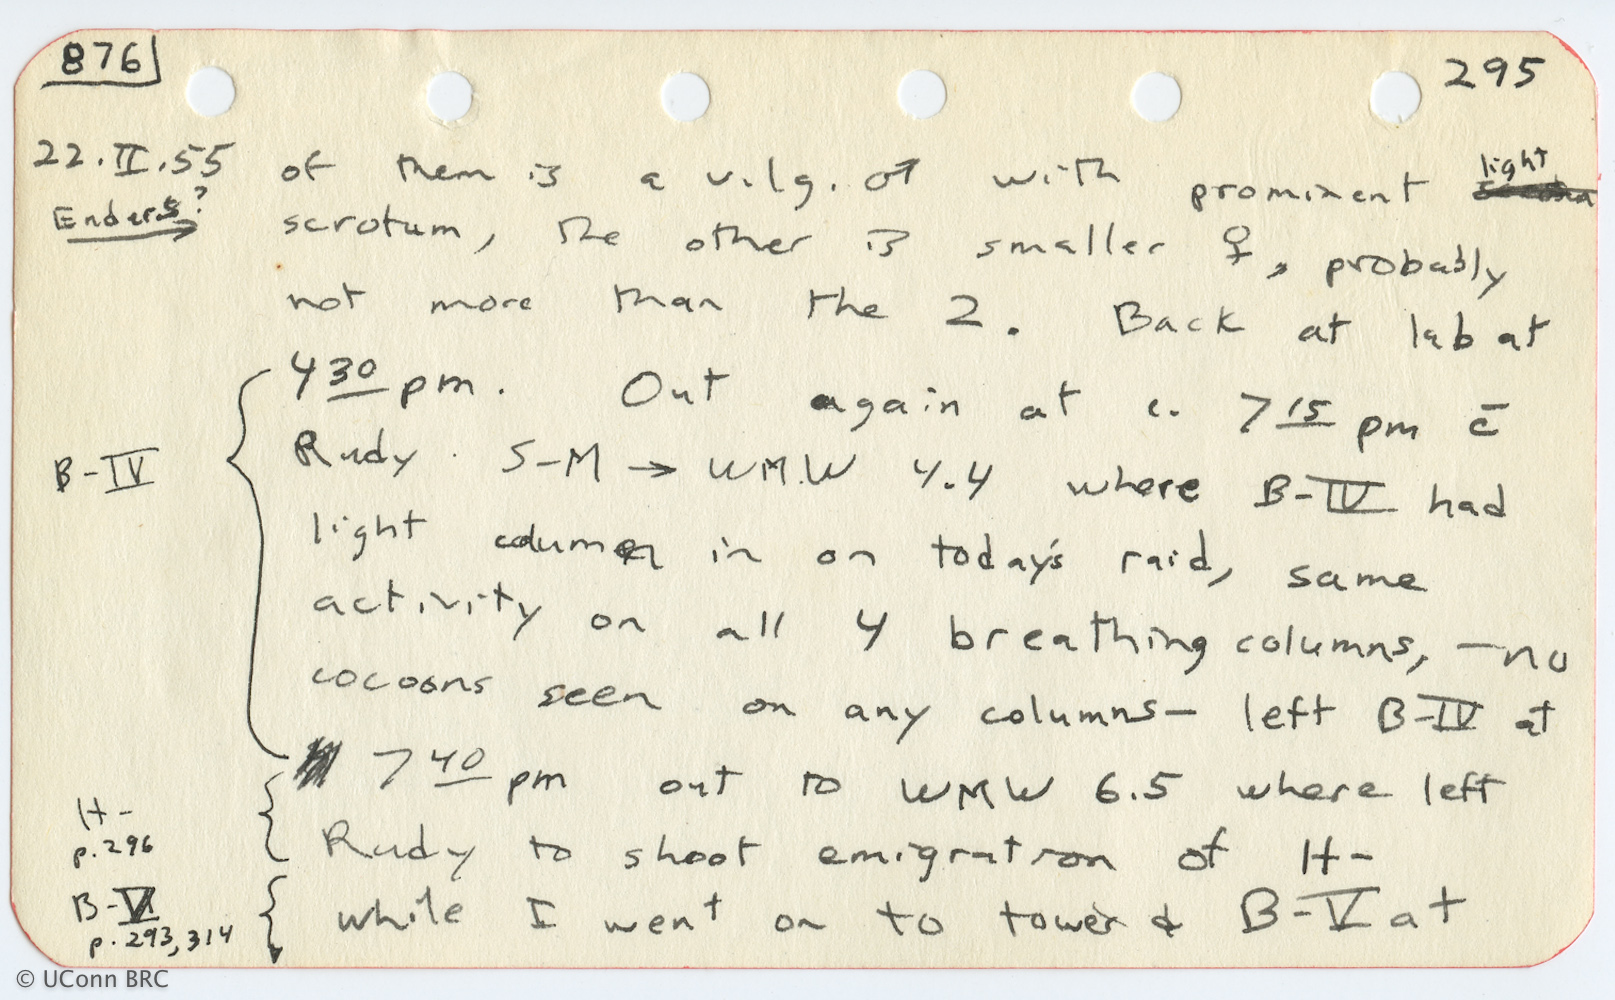 876
295
22.II.55 of them is a v.lg. ♂ with prominent light
Enders? scrotum, the other is smaller ♀, probably
not more than the 2. Back at lab at
4 30 pm. Out again at c. 7 15 pm c̄
B-IV Rudy. S-M → WMW 4.4 where B-IV had
light column in on today's raid, same
activity on all 4 breathing columns, —no
cocoons seen on any columns— left B-IV at
7 40 pm out to WMW 6.5 where left
H-
p.296 Rudy to shoot emigration of H-
B-V
p.293,314 while I went on to tower & B-V at
© UConn BRC